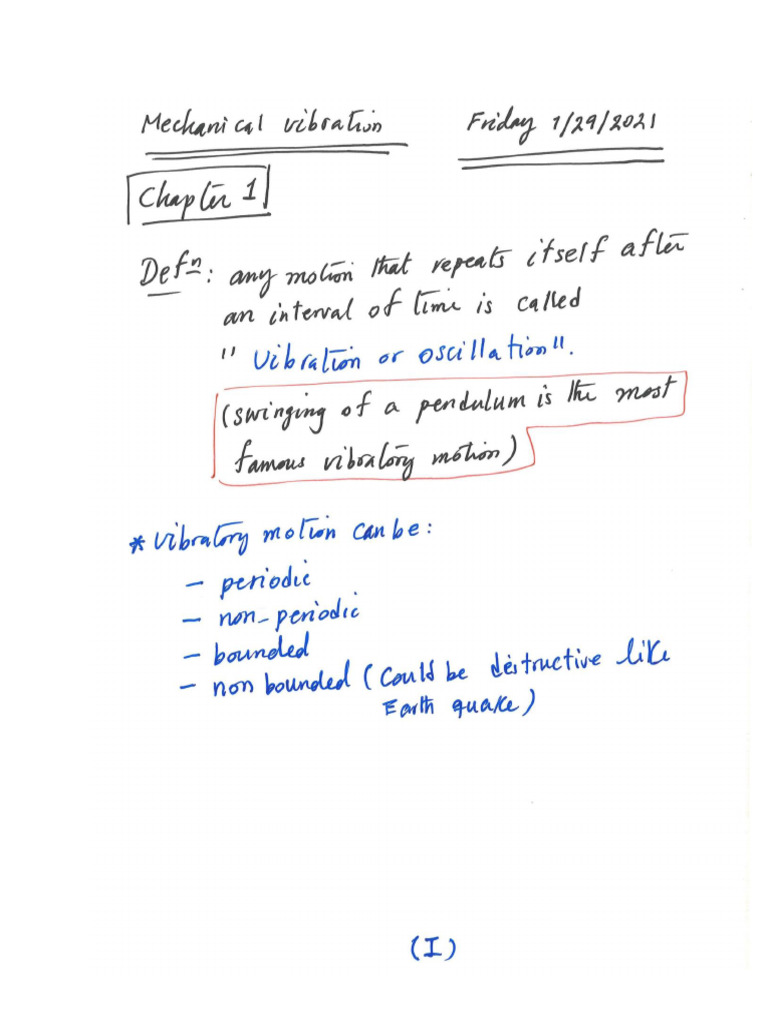 Mechanical vibration Friday 1/29/2021
Chapter 1
Defn: any motion that repeats itself after
an interval of time is called
"vibration or oscillation".
(swinging of a pendulum is the most
famous vibratory motion)
* vibratory motion can be:
- periodic
- non-periodic
- bounded
- non bounded (Could be destructive like
Earth quake)
(I)